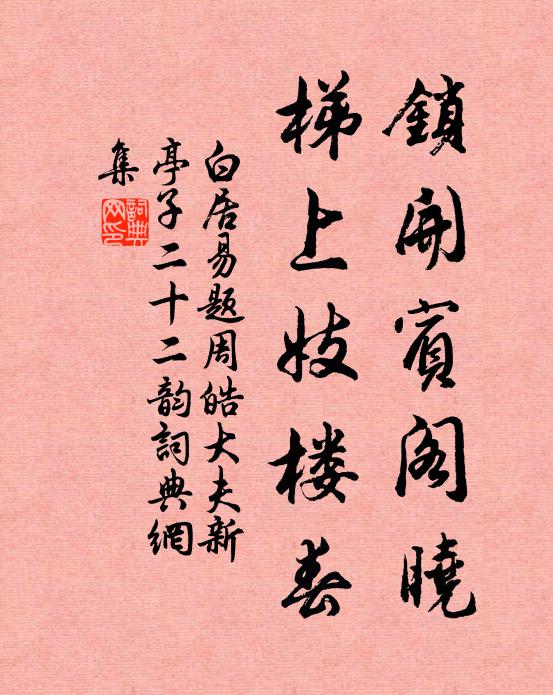 鎖開賓閣曉
梯上妓楼春
白居易题周皓大夫新
亭子二十二韵詞典網
集
詞典
网印